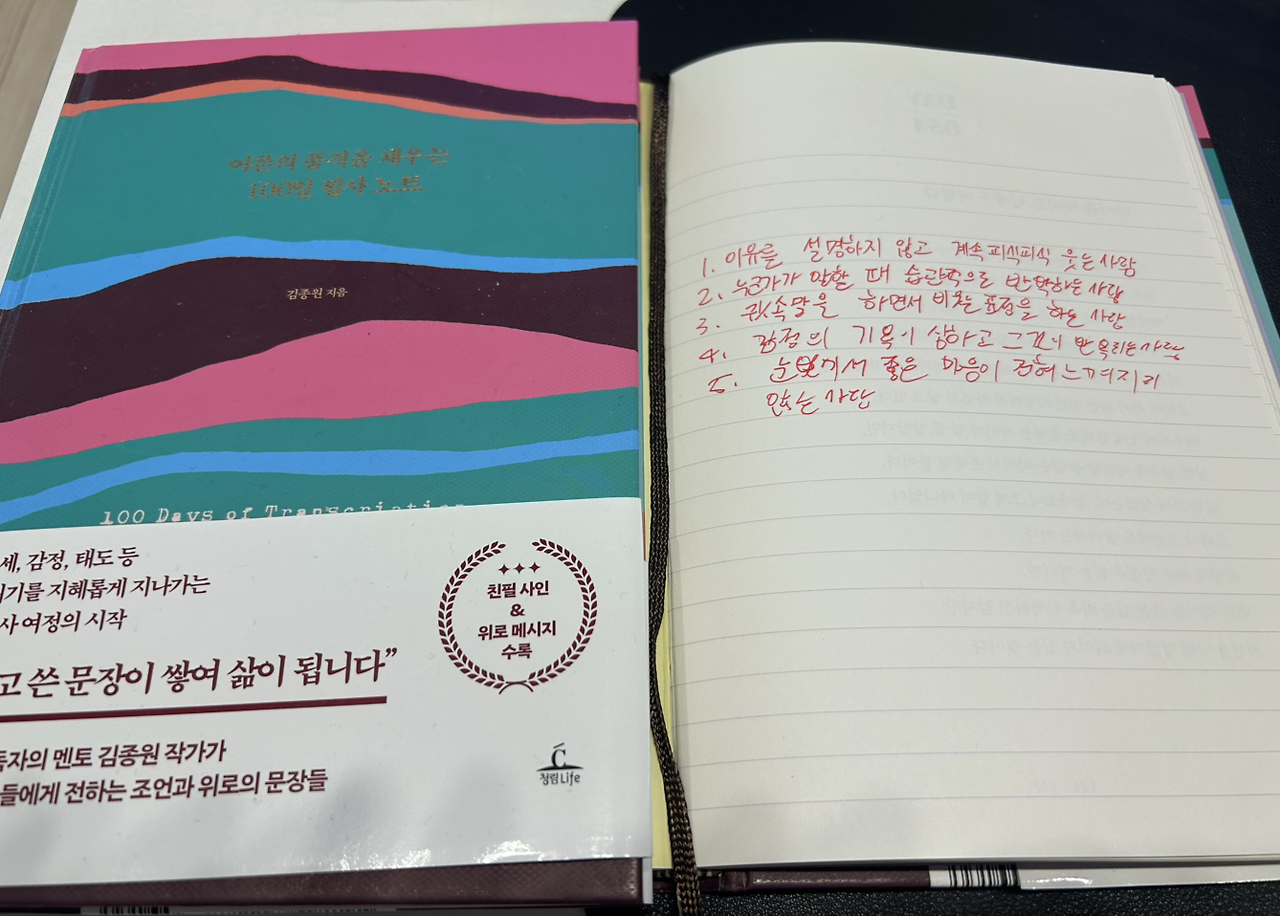 어른의 품격을 채우는
100일 필사 노트
김종원 지음
100 Days of Transcription
세, 감정, 태도 등
기를 지혜롭게 지나가는
사 여정의 시작
고 쓴 문장이 쌓여 삶이 됩니다”
독자의 멘토 김종원 작가가
들에게 전하는 조언과 위로의 문장들
친필 사인
&
위로 메시지
수록
청림Life
1. 이유를 설명하지 않고 계속 피식피식 웃는 사람
2. 누군가가 말할 때 습관적으로 반박하는 사람
3. 귓속말을 하면서 비웃는 표정을 하는 사람
4. 감정의 기복이 심하고 그것이 반복되는 사람
5. 눈빛에서 좋은 마음이 전혀 느껴지지
않는 사람